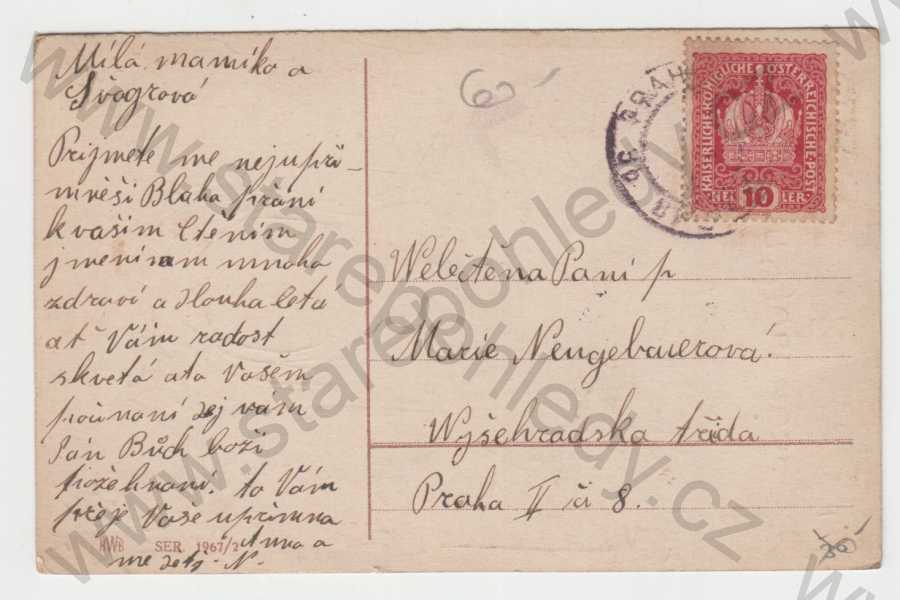 Milá mamiko a
Švogrová
Prijmete me nejupři-
mněši Blaha přání
k vašim Ctěním
jmeninam mnoho
zdraví a dlouha letá
ať Vám radost
skvetá ato Vašém
počinaní dej vam
Pán Bůch boži
požehnaní. to Vám
přeje Vaše uprimna
Anna a
HWB SER. 1967/2
N.
6-
PRAHA
KAISERLICHE·KÖNIGLICHE·ÖSTERREICHISCHE·POST
HELLER
10
Welectěna Paní p
Marie Neugebauerová.
Wyšehradska třida
Praha II č 8.
30
www.starepohledy.cz